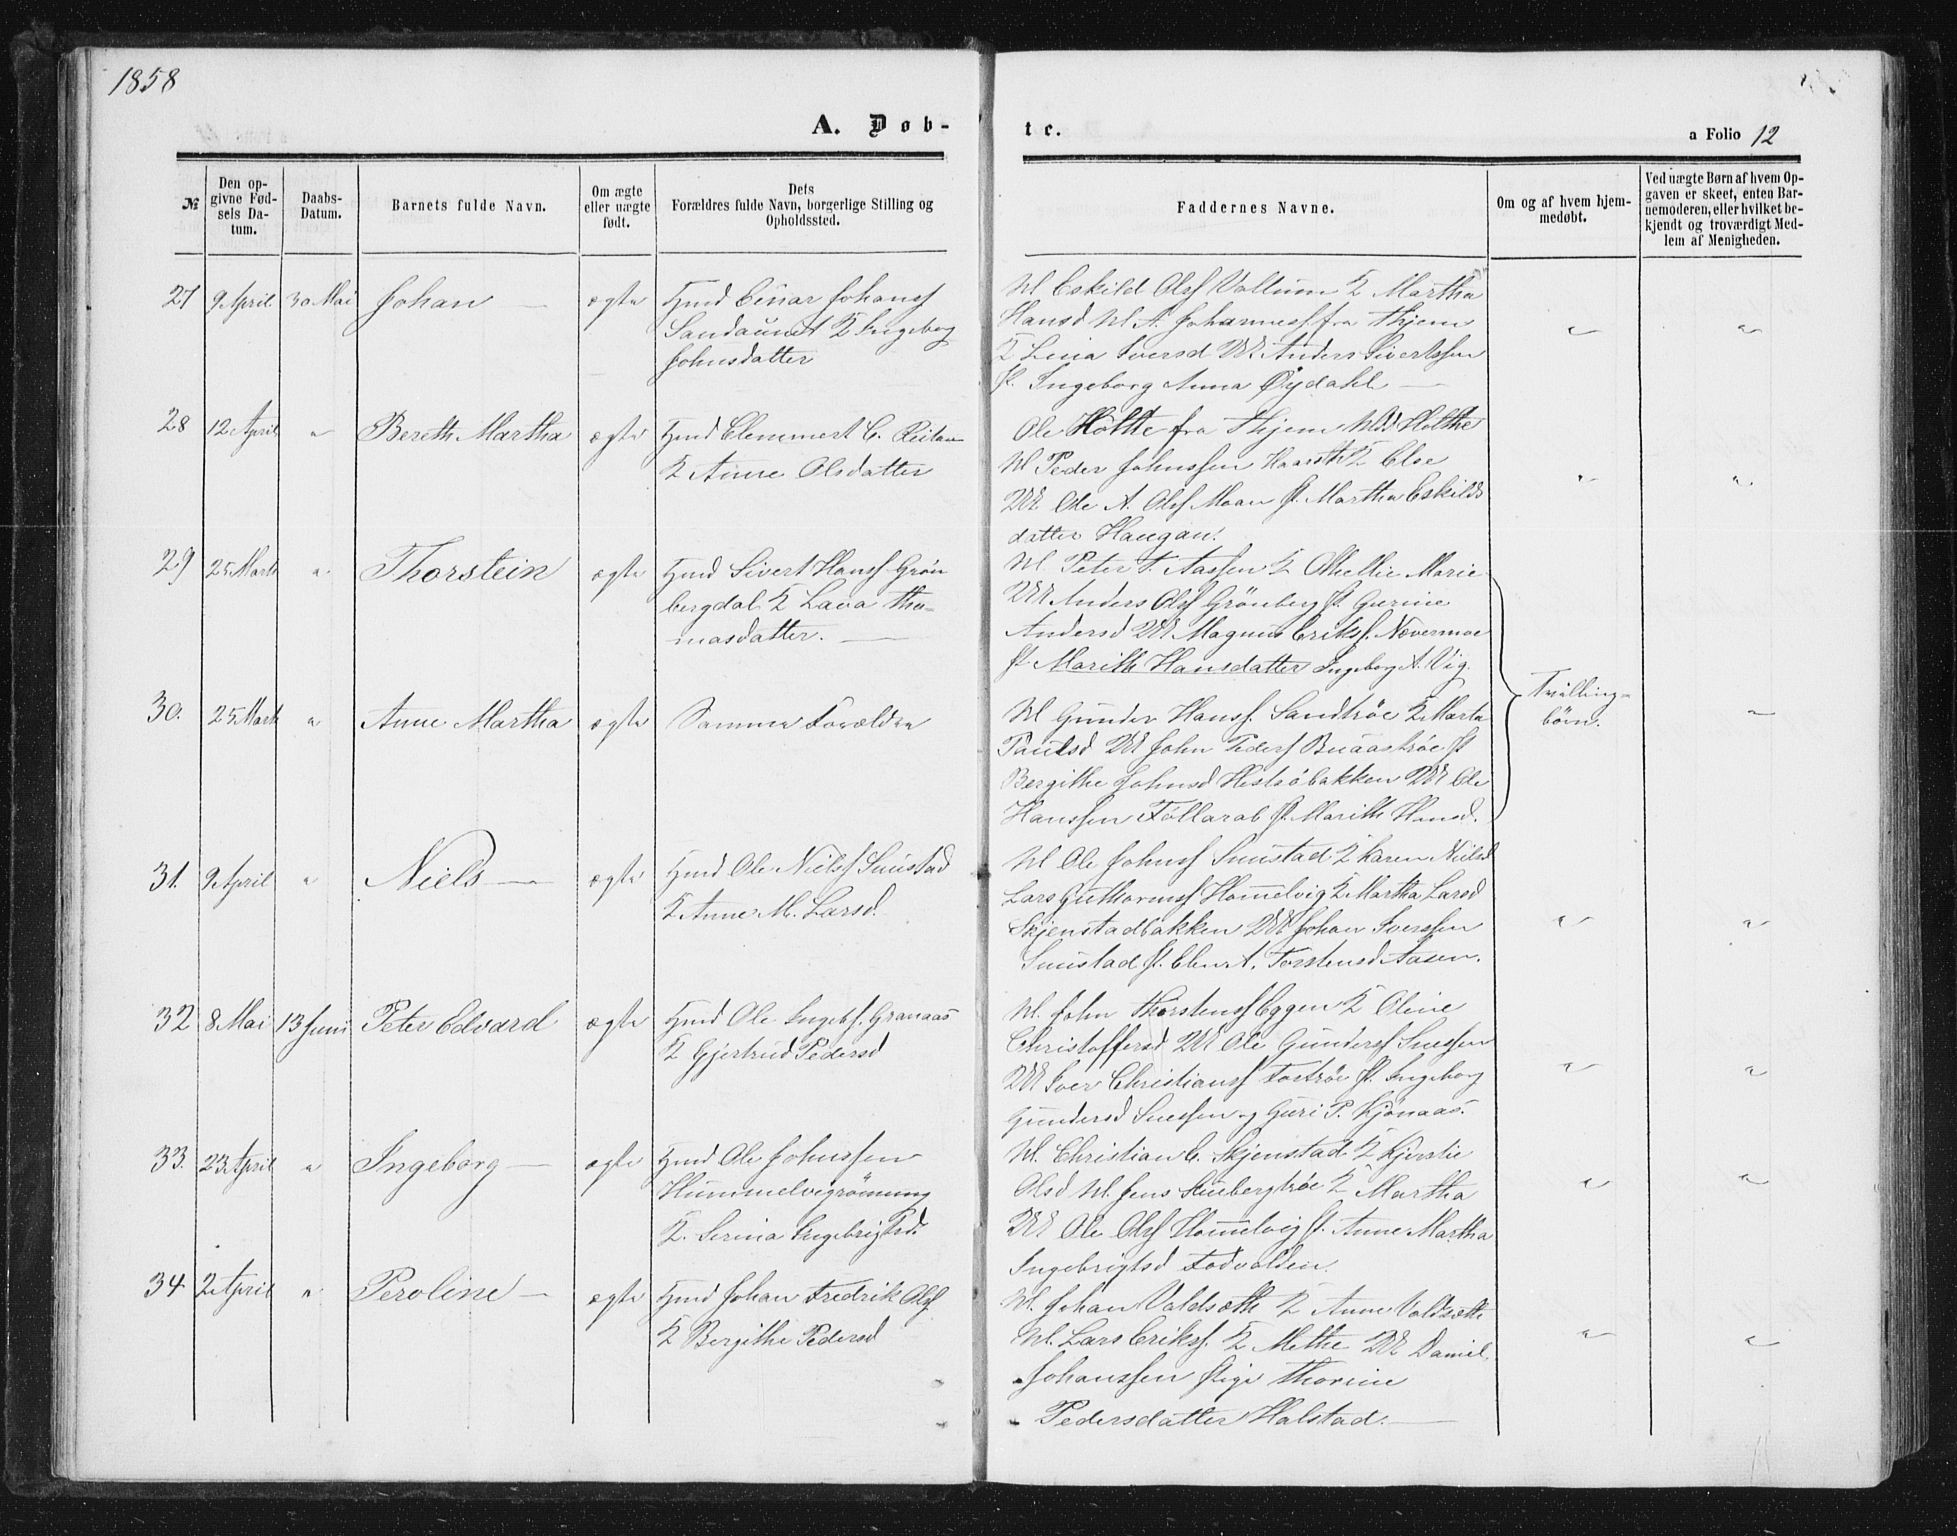 1858
A. Døb-
te.
a Folio 12
№
Den op-
givne Fød-
sels Da-
tum.
Daabs-
Datum.
Barnets fulde Navn.
Om ægte
eller uægte
født.
Dets
Forældres fulde Navn, borgerlige Stilling og
Opholdssted.
Faddernes Navne.
Om og af hvem hjem-
medøbt.
Ved uægte Børn af hvem Op-
gaven er skeet, enten Bar-
nemoderen, eller hvilket be-
kjendt og troværdigt Med-
lem af Menigheden.
27 9 April 30 Mai Johan — ægte Hmd Einar Johans
Sandaunet K Ingeborg
Johnsdatter
M Eskild Ols Vollum K Martha
Hansd M A. Johannes fra Thjem
K Lina Iversd UK Anders Sivertssen
P. Ingeborg Anna Øydahl —
" "
28 12 April " Bereth Martha ægte Hmd Clemmert C. Reitan
K Anne Olsdatter
Ole Holthe fra Thjem Holthe
M Peder Johnssen Haarstk K Else
UK Ole A. Ols Moan P. Martha Eskilds
datter Haugan.
" "
29 25 Marts " Thorstein ægte Hmd Sivert Hans Grön
bergdal K Lava Tho-
masdatter. —
M Peter T. Aassen K Marie
UK Anders Ols Grönberg P. Gurine
Andersd UK Magnus Eriks. Nevermoe
P Marith Hansdatter Ingeborg A. Vig.
Tvilling-
børn.
30. 25 Marts " Anne Martha ægte Samme Forældre
M Gunder Hans. Sandtrøe K Marta
Paulsd UK John Peders Buaastrøe P
Bergithe Johnsd Hestøbakken UK Ole
Hanssen Føllarab P. Marith Hansd.
"
31. 9 April " Niels — ægte Hmd Ole Niels Smistad
K Anne M. Larsd.
M Ole Johns Smistad K Karen Nielsd
Lars Guthorms Homelvig K Martha Larsd
Skjenstadbakken UK Johan Iverssen
Smistad P. Elen A. Torstensd Aasen.
" "
32 8 Mai 13 Juni Peter Edvard ægte Hmd Ole Ingebs. Granaas
K Gjertrud Pedersd
M. John Thorstens Eggen K Oline
Christoffersd UK Ole Gunders
UK Iver Christians P. Ingeborg
Gundersd og Guri P. Kjönaas.
" "
33. 23 April " Ingeborg — ægte Hmd Ole Johnssen
Hummelvigrönning
K. Serina Ingebrigtsd.
M. Christian C. Skjenstad K Kjerstie
Olsd M. Jens Stubergtrøe K Martha
UK Ole Ols Homelvig P. Anne Martha
Ingebrigtsd Fodvolden.
" "
34 2 April " Peroline — ægte Hmd Johan Fredrik Ols
K Bergithe Pedersd
M. Johan Valdsæth K Anne Valdsæth
M. Lars Eriks. K Methe UK Daniel
Johanssen Pige Thorine
Pedersdatter Halstad. —
" "